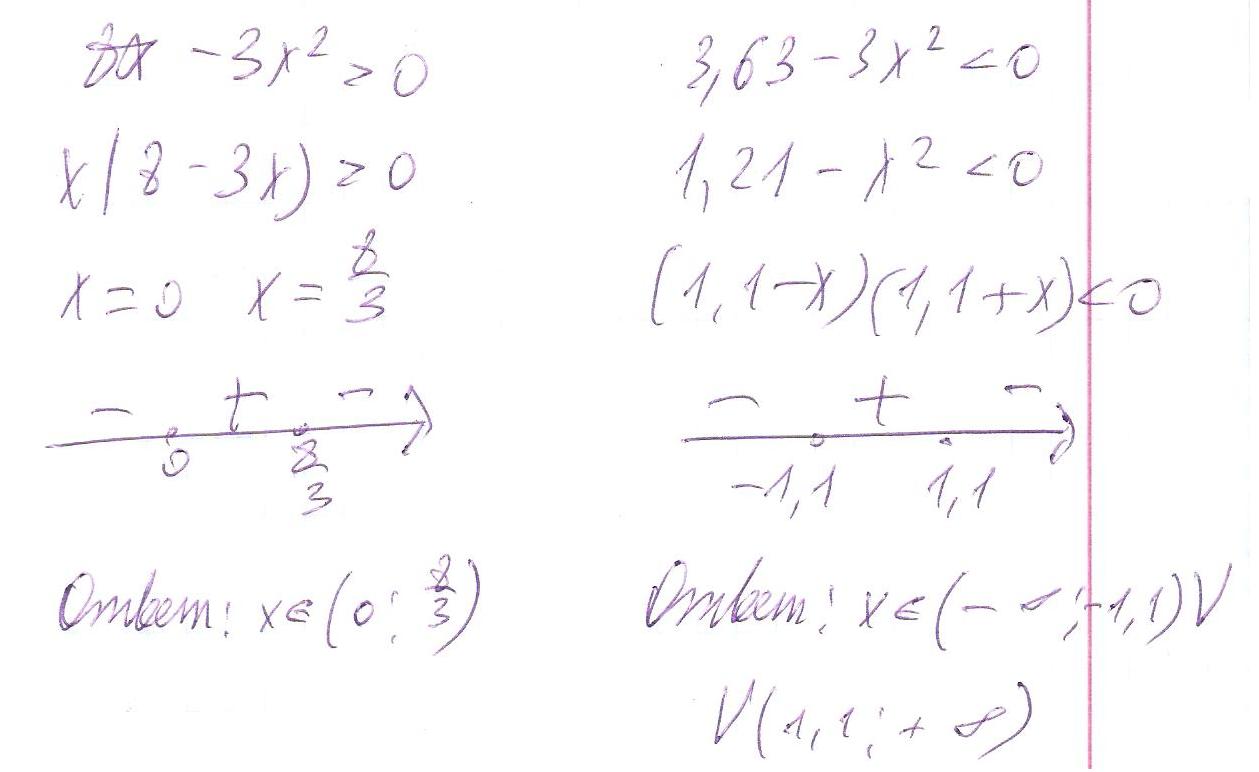 8x - 3x² > 0
x(8 - 3x) > 0
x = 0 x = 8/3
- + -
0 8/3
Ответ: x ∈ (0; 8/3)
3,63 - 3x² < 0
1,21 - x² < 0
(1,1 - x)(1,1 + x) < 0
- + -
-1,1 1,1
Ответ: x ∈ (-∞; -1,1) V
V (1,1; +∞)